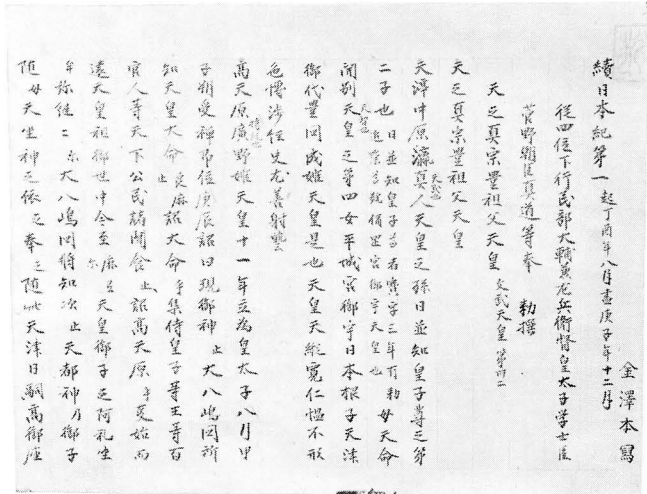 金澤本寫
續日本紀第一 起丁酉年八月盡庚子年十二月
從四位下行民部大輔兼左兵衛督皇太子学士臣
菅野朝臣真道等奉 勅撰
天之真宗豊祖父天皇 文武天皇 第四二
天之真宗豊祖父天皇
天渟中原瀛真人天皇之孫日並知皇子尊之第 天武也
二子也 日並知皇子尊者寶字二年有勅 母天命
追崇尊號稱岡宮御宇天皇也
開別天皇之第四女平城宮御宇日本根子天津 天智也
御代豊国成姫天皇是也天皇天縦寛仁慍不形
色博渉経史尤善射藝
高天原廣野姫天皇十一年立為皇太子八月甲 持統也
子朔受禅即位庚辰詔曰現御神止大八嶋国所
知天皇大命良麻詔大命乎集侍皇子等王等百
官人等天下公民諸聞食止詔高天原乎事始而
遠天皇祖御世中今至麻尓天皇御子之阿礼坐
牟弥継二尓大八嶋国将知次止天都神乃御子
随母天坐神之依之奉之随此天津日嗣高御座